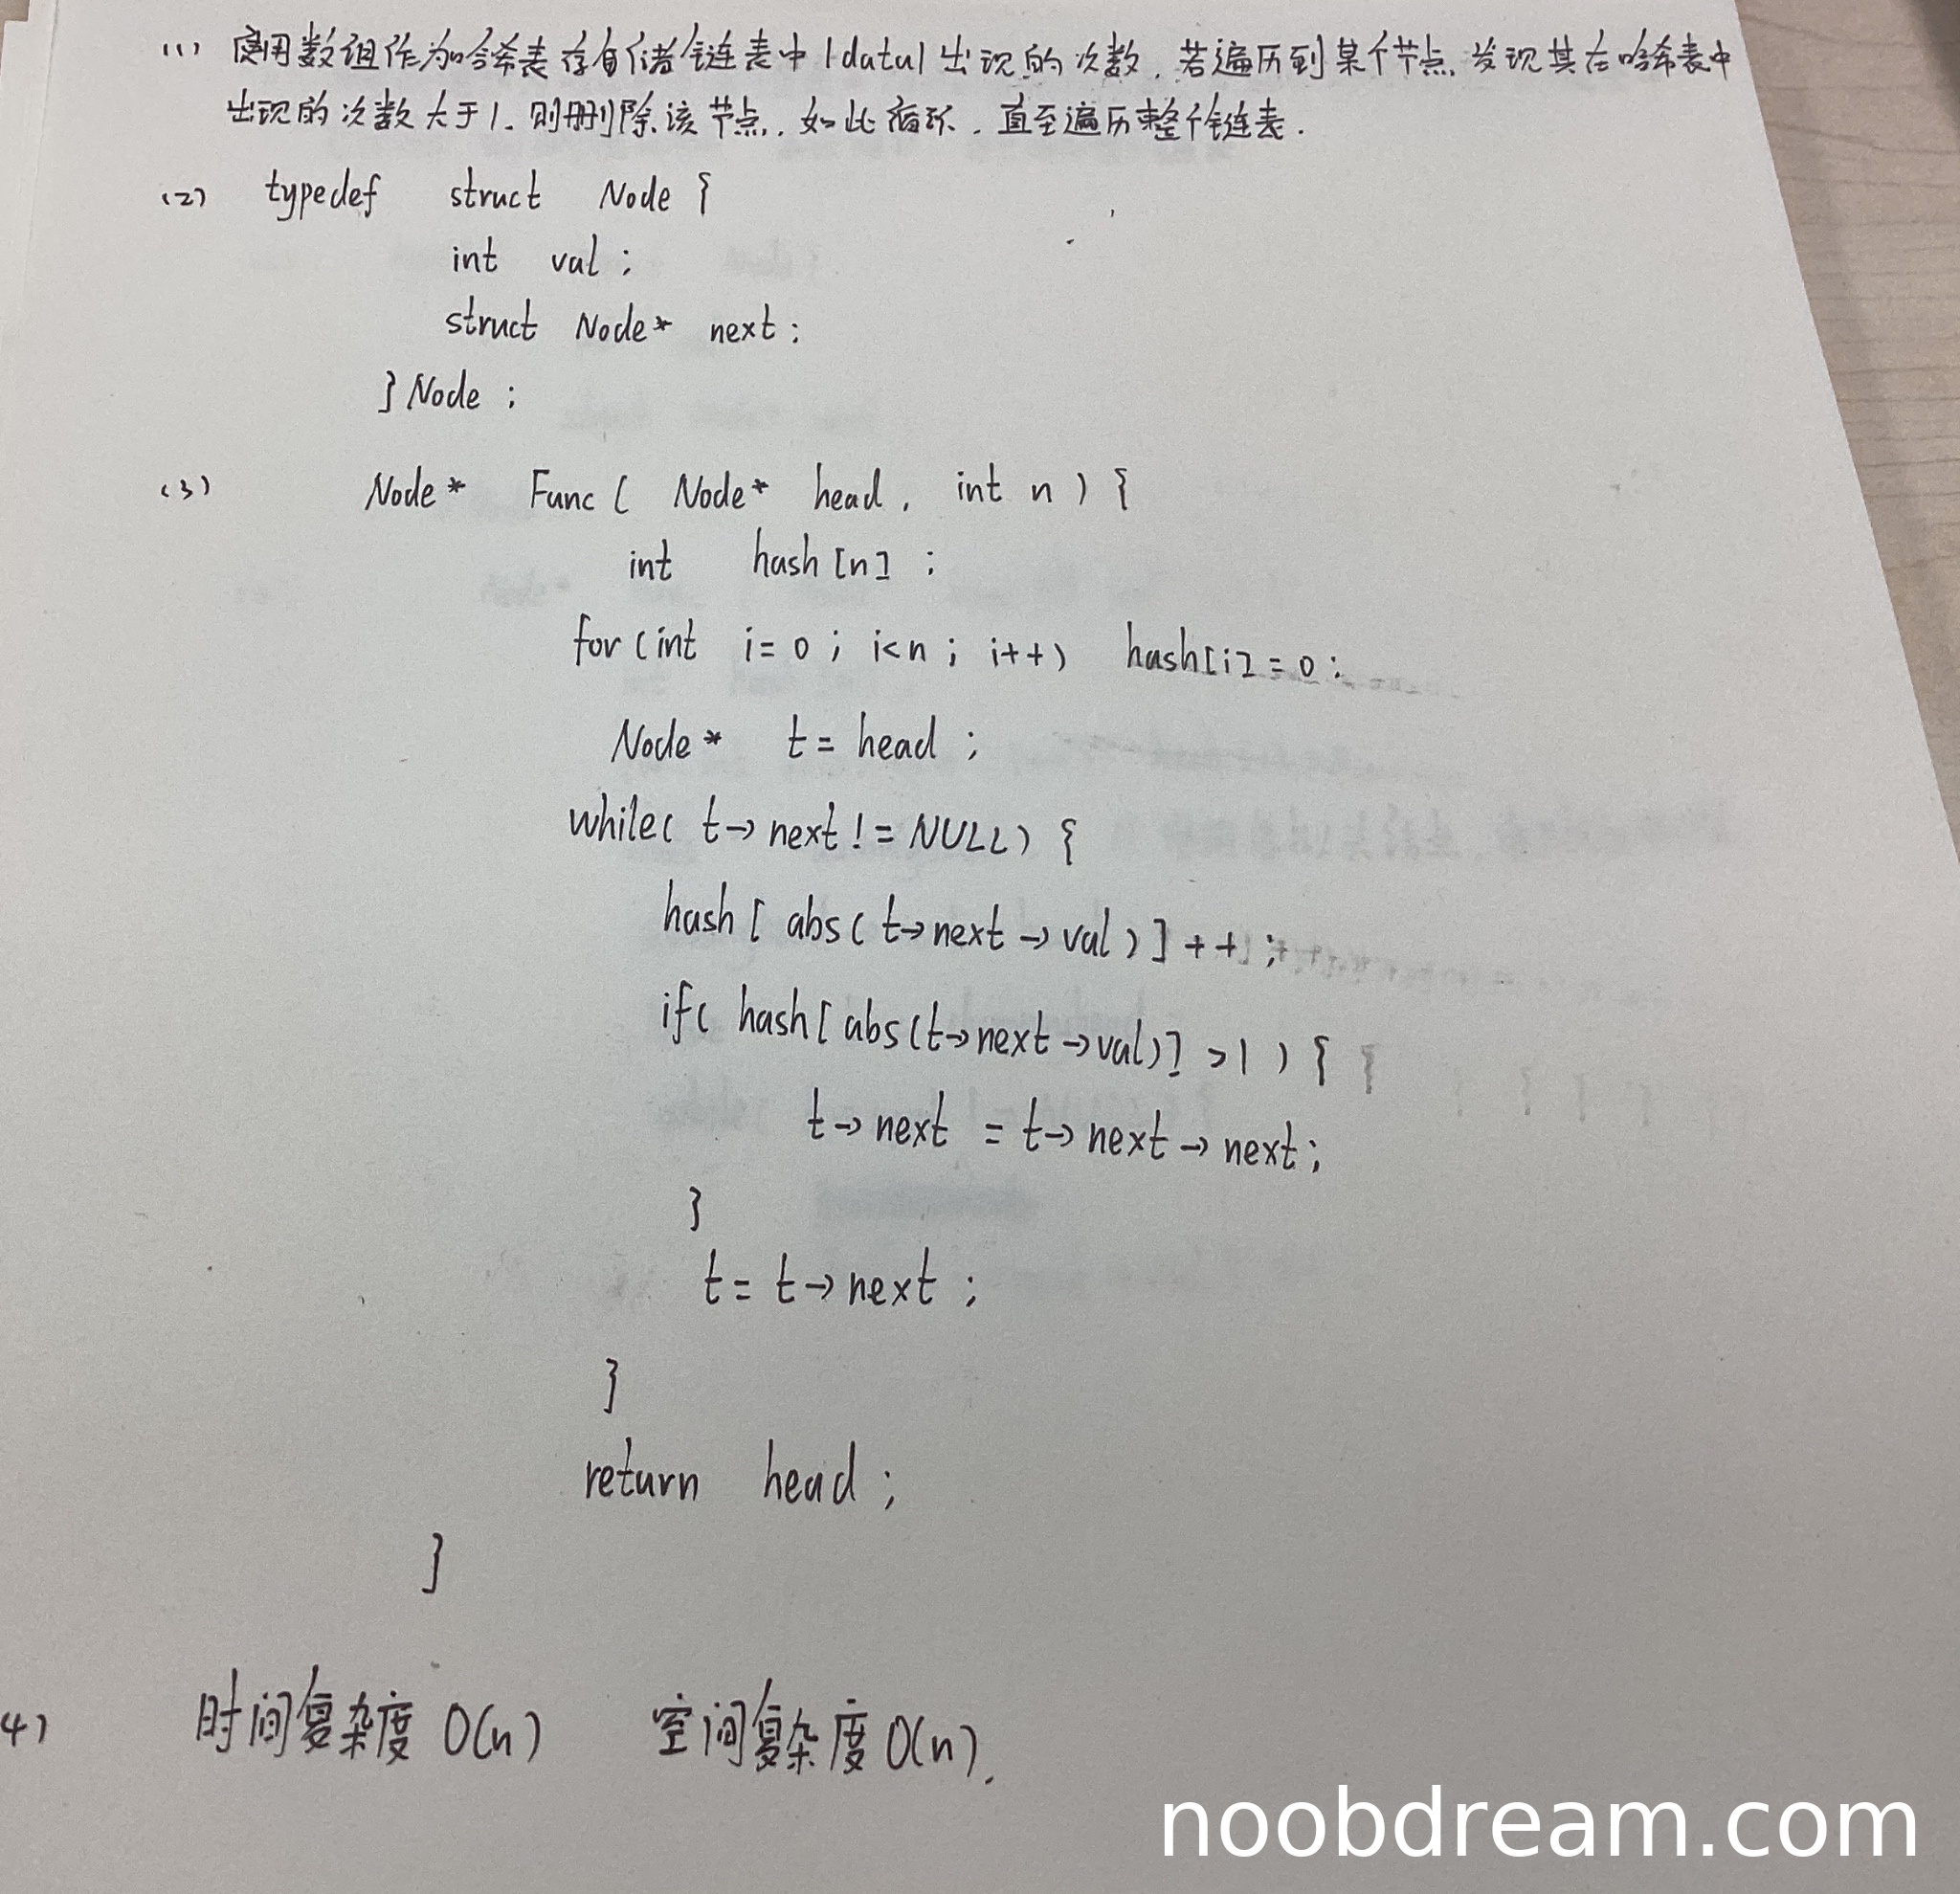 (1) 使用数组作为哈希表存储链表中|data|出现的次数,若遍历到某个节点,发现其在哈希表中
出现的次数大于1,则删除该节点,如此循环,直至遍历整个链表.
(2) typedef struct Node {
int val ;
struct Node* next ;
} Node ;
(3) Node* Func( Node* head, int n ) {
int hash[n] ;
for(int i=0 ; i<n ; i++) hash[i]=0 ;
Node* t = head ;
while( t→next != NULL) {
hash[ abs( t→next→val ) ]++ ;
if( hash[ abs(t→next→val)] >1 ) {
t→next = t→next→next ;
}
t = t→next ;
}
return head ;
}
4) 时间复杂度 O(n) 空间复杂度 O(n).
noobdream.com